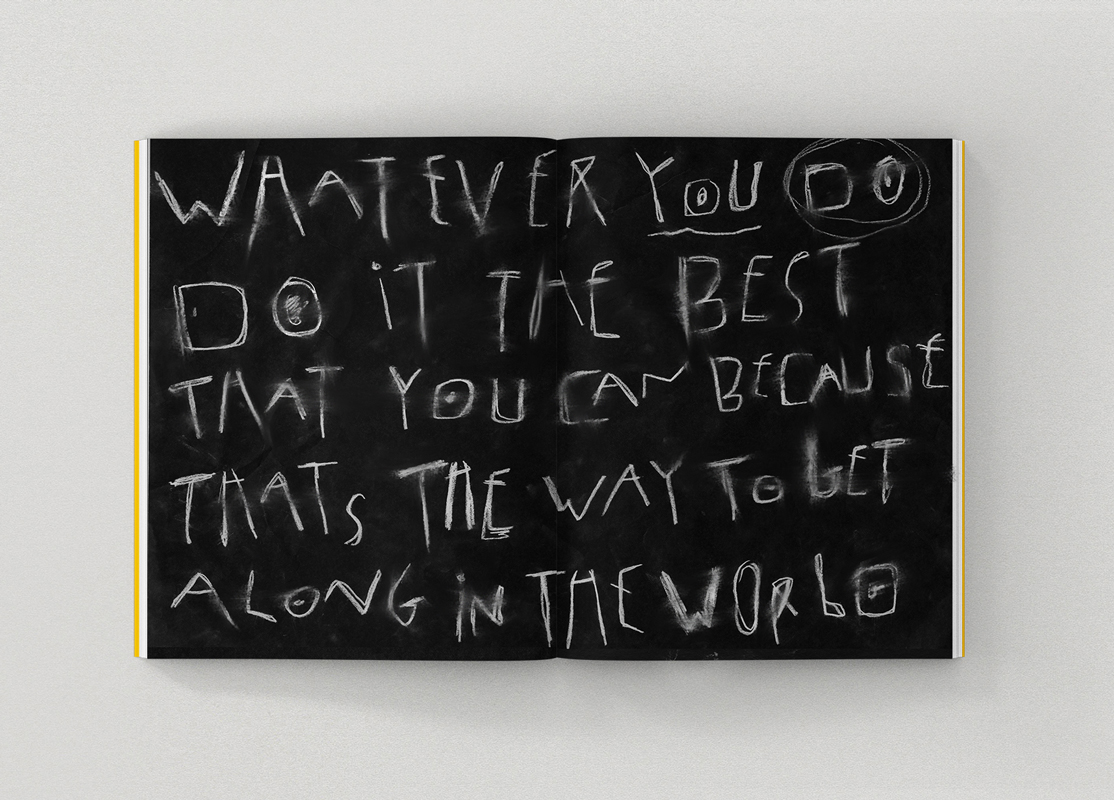 WHATEVER YOU DO
DO iT THE BEST
THAT YOU CAN BECAUSE
THATS THE WAY TO GET
ALONG iN THE WORLD